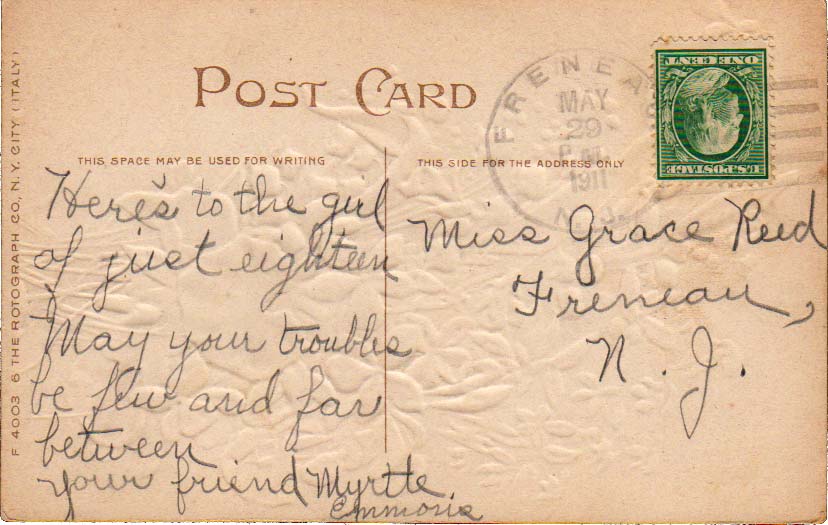 F 4003 6 THE ROTOGRAPH CO., N.Y. CITY (ITALY)
POST CARD
THIS SPACE MAY BE USED FOR WRITING
THIS SIDE FOR THE ADDRESS ONLY
FRENEA
MAY
29
1911
N.J.
ONE CENT
U.S. POSTAGE
Here's to the girl
of just eighteen
May your troubles
be few and far
between
your friend Myrtle
Emmons
Miss Grace Reed
Freneau,
N. J.